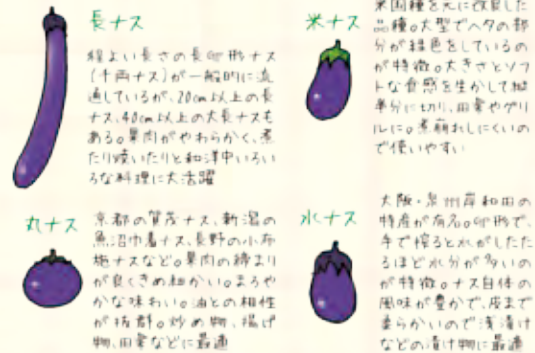 長ナス
程よい長さの長卵形ナス
(千両ナス)が一般的に流
通しているが、20cm以上の長
ナス、40cm以上の大長ナスも
ある。果肉がやわらかく、煮
たり焼いたりと和洋中いろい
ろな料理に大活躍
米ナス
米国種を元に改良した
品種。大型でヘタの部
分が緑色をしているの
が特徴。大きさとソフ
トな食感を生かして縦
半分に切り、田楽やグリ
ルに。煮崩れしにくいの
で使いやすい
丸ナス
京都の賀茂ナス、新潟の
魚沼巾着ナス、長野の小布
施ナスなど。果肉の締まり
が良くきめ細かい。まろや
かな味わい。油との相性
が抜群。炒め物、揚げ
物、田楽などに最適
水ナス
大阪・泉州岸和田の
特産が有名。卵形で、
手で搾ると水がしたた
るほど水分が多いの
が特徴。ナス自体の
風味が豊かで、皮まで
柔らかいので浅漬け
などの漬け物に最適